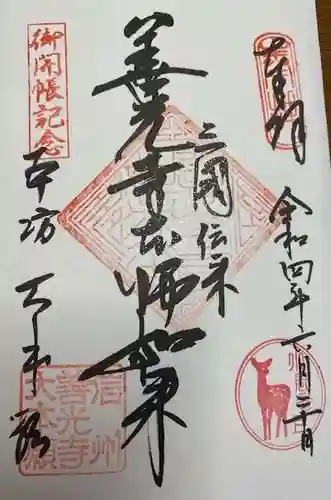 奉拝
令和四年六月二十日
三国伝来
善光寺本師如来
御開帳記念
本坊 大本願
信州
善光寺
大本願